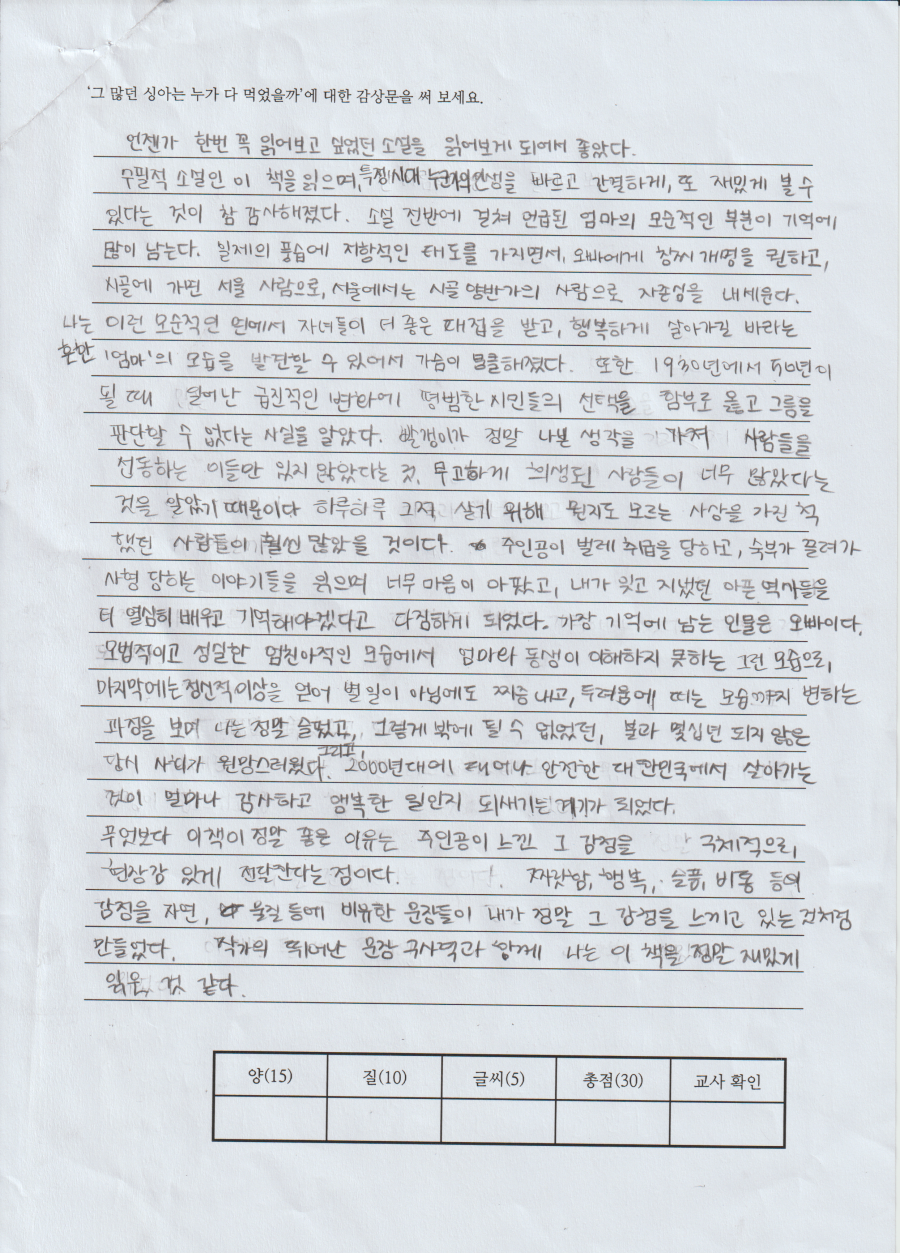 '그 많던 싱아는 누가 다 먹었을까'에 대한 감상문을 써 보세요.
언젠가 한번 꼭 읽어보고 싶었던 소설을 읽어보게 되어서 좋았다.
수필적 소설인 이 책을 읽으며, 특정시대 누군가의 인생을 빠르고 간결하게, 또 재밌게 볼 수
있다는 것이 참 감사해졌다. 소설 전반에 걸쳐 언급된 엄마의 모순적인 부분이 기억에
많이 남는다. 일제의 풍습에 저항적인 태도를 가지면서, 오빠에게 창씨개명을 권하고,
시골에 가면 서울 사람으로, 서울에서는 시골 양반가의 사람으로 자존심을 내세운다.
나는 이런 모순적인 면에서 자녀들이 더 좋은 대접을 받고, 행복하게 살아가길 바라는
흔한 '엄마'의 모습을 발견할 수 있어서 가슴이 뭉클해졌다. 또한 1930년에서 50년이
될 때 일어난 급진적인 변화에 평범한 시민들의 선택을 함부로 옳고 그름을
판단할 수 없다는 사실을 알았다. 빨갱이가 정말 나쁜 생각을 가져 사람들을
선동하는 이들만 있지 않았다는 것, 무고하게 희생된 사람들이 너무 많았다는
것을 알았기 때문이다 하루하루 그저 살기 위해 뭔지도 모르는 사상을 가진 척
했던 사람들이 훨씬 많았을 것이다. 주인공이 벌레 취급을 당하고, 숙부가 끌려가
사형 당하는 이야기들을 읽으며 너무 마음이 아팠고, 내가 잊고 지냈던 아픈 역사들을
더 열심히 배우고 기억해야겠다고 다짐하게 되었다. 가장 기억에 남는 인물은 오빠이다.
모범적이고 성실한 엄친아적인 모습에서 엄마와 동생이 이해하지 못하는 그런 모습으로,
마지막에는 정신적 이상을 얻어 별일이 아님에도 짜증내고, 두려움에 떠는 모습까지 변하는
과정을 보며 나는 정말 슬펐고, 그렇게 밖에 될 수 없었던, 불과 몇십년 되지 않은
당시 사회가 원망스러웠다. 그리고, 2000년대에 태어나 안전한 대한민국에서 살아가는
것이 얼마나 감사하고 행복한 일인지 되새기는 계기가 되었다.
무엇보다 이책이 정말 좋은 이유는 주인공이 느낀 그 감정을 구체적으로,
현장감 있게 전달한다는 점이다. 짜릿함, 행복, 슬픔, 비통 등의
감정을 자연, 물질 등에 비유한 문장들이 내가 정말 그 감정을 느끼고 있는 것처럼
만들었다. 작가의 뛰어난 문장 구사력과 함께 나는 이 책을 정말 재밌게
읽은 것 같다.
양(15) 질(10) 글씨(5) 총점(30) 교사 확인